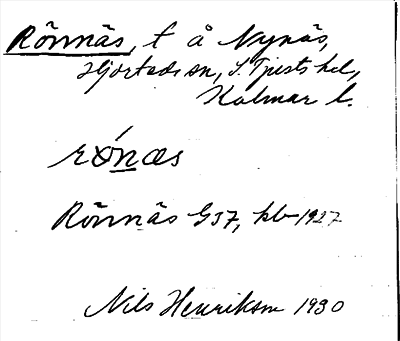 Rönnäs, t å Nynäs,
Hjorteds sn, S. Tjusts hd,
Kalmar l.
rǿnæs
Rönnäs G57, kb 1927
Nils Henrikson 1930